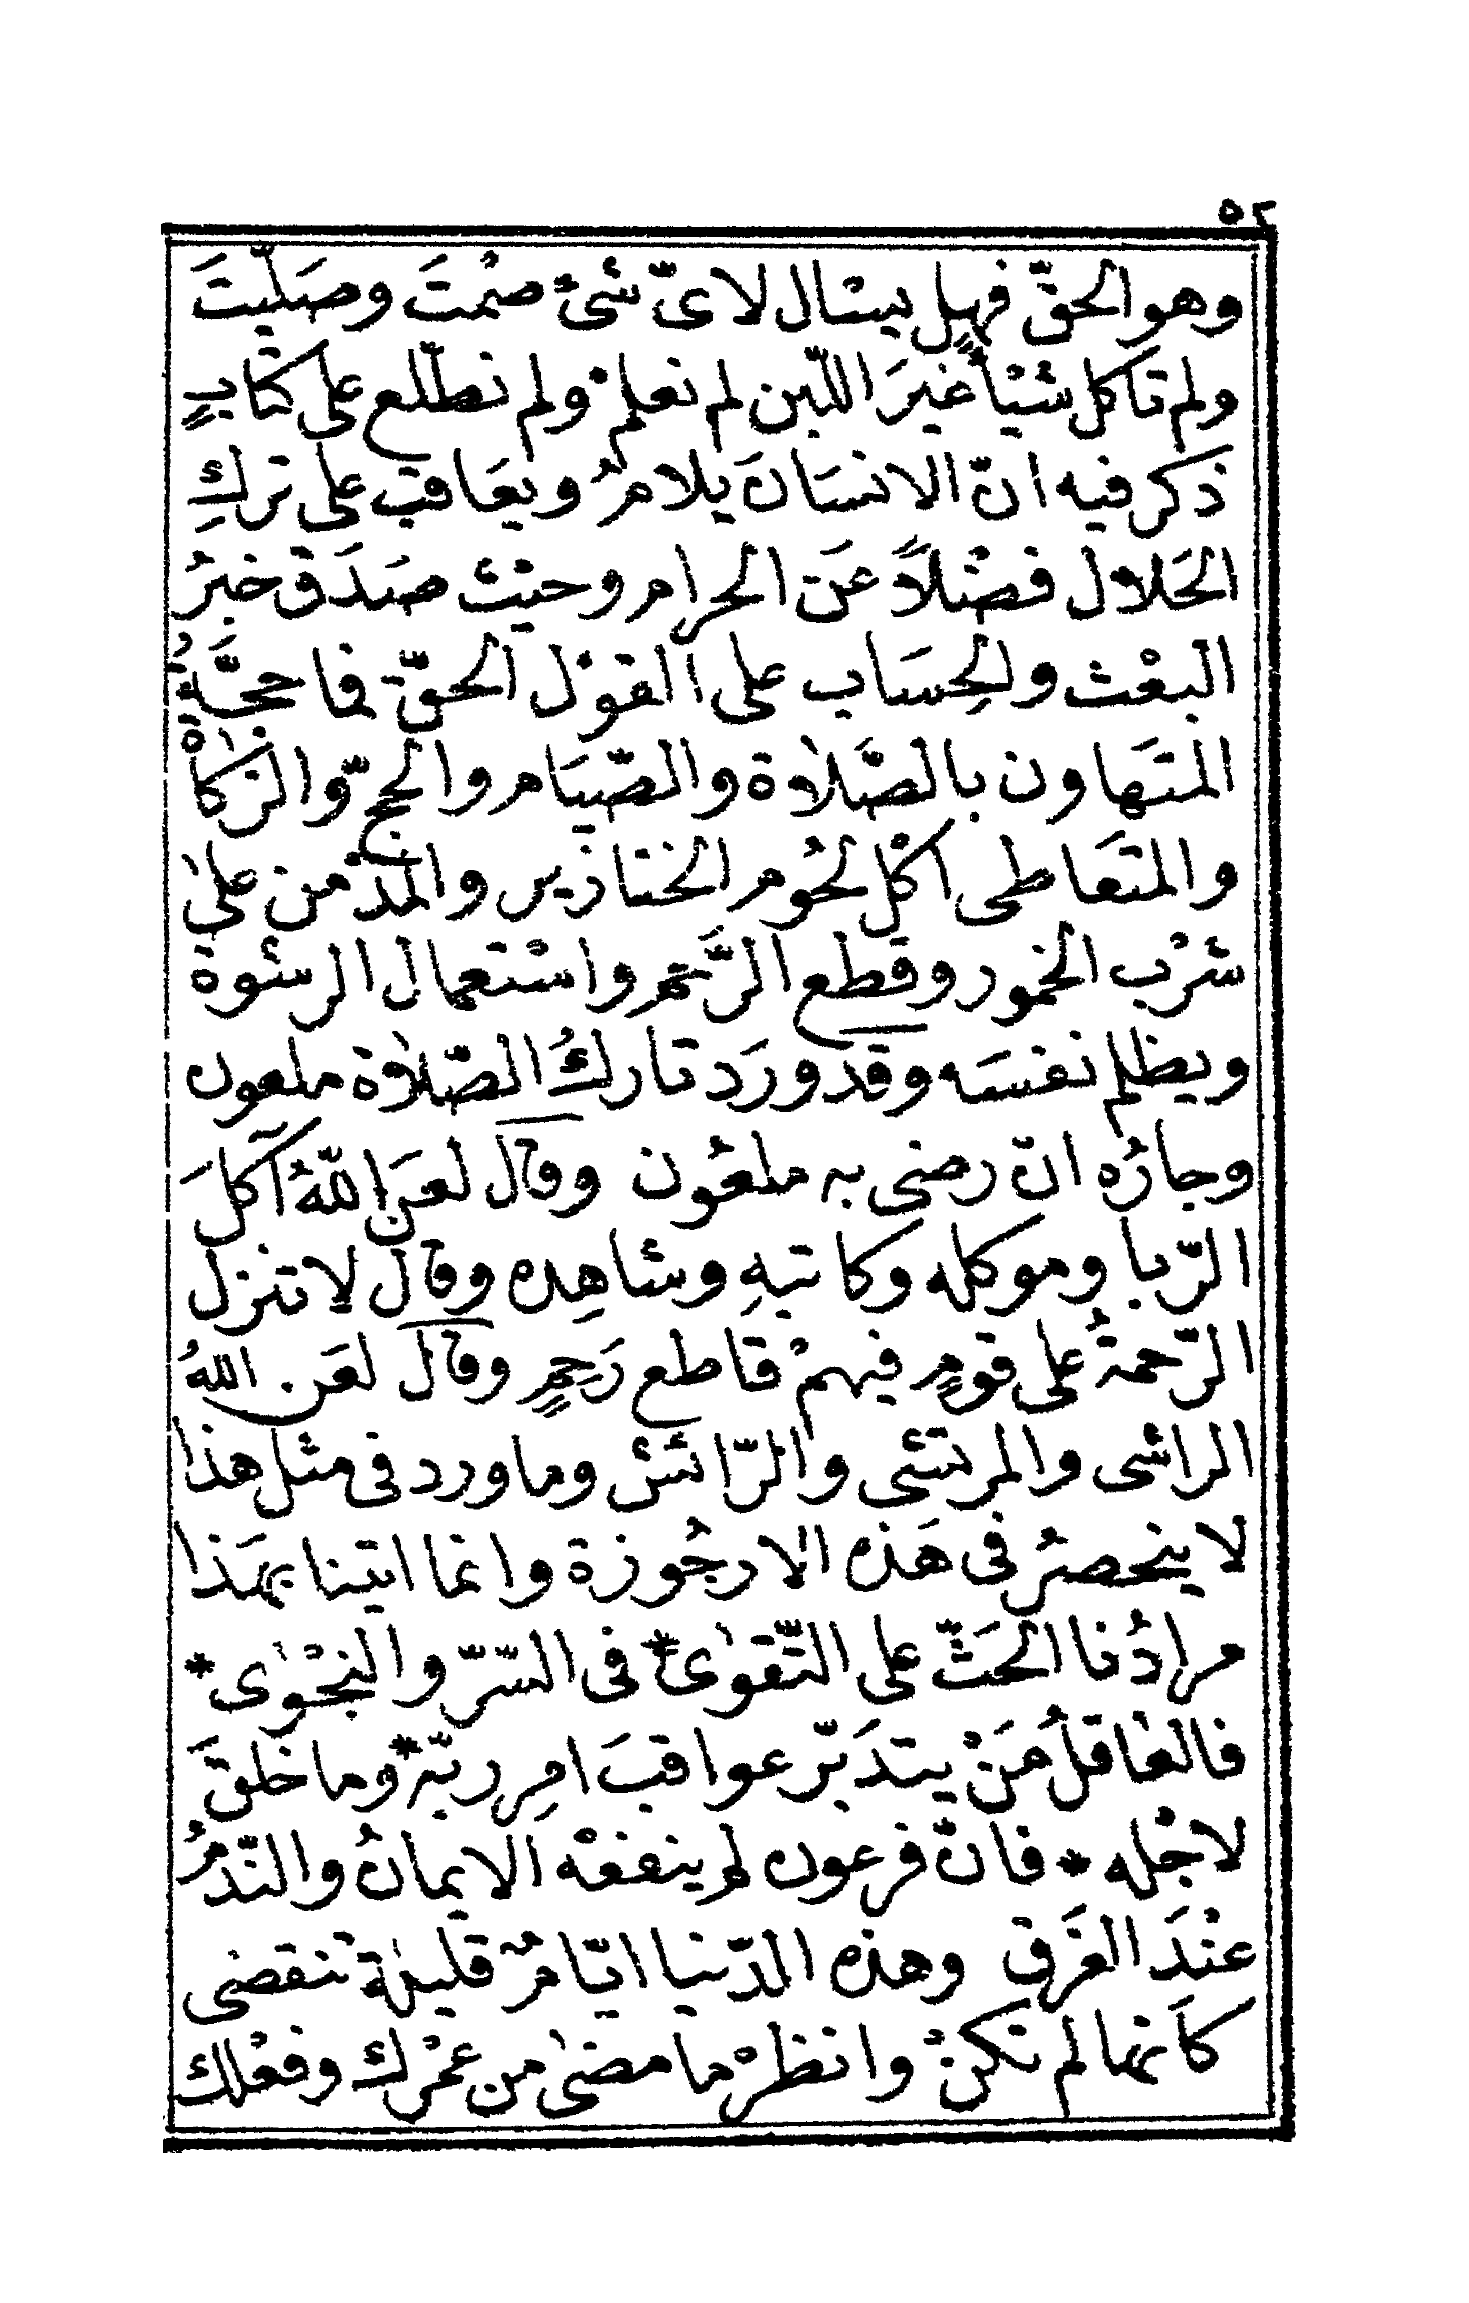 ٥٢
وهو الحقّ فهل يسْال لاىّ شئ صُمْتَ وصَلّيتَ
ولم تاكل شيْأً غيرَ اللّبن لم نعلمْ ولم نطّلع على كتابٍ
ذكر فيه انّ الانسَانَ يلامُ ويعَاقبَ على تركِ
الحَلال فضْلاً عَن الحرام وحيْث صَدَقَ خبرُ
البعْث ولحِسَاب على القوْل الحقّ فما حجَّةُ
المتَهاون بالصَّلاة والصّيَام والحجّ والزكاةْ
والمتَعَاطى اكْل لحُوم الخنازير والمدْمن على
شرْب الخمور وقطع الرَّحم واسْتعمال الرشوة
ويظلم نفسَه وقد ورَد تاركُ الصّلاة ملعون
وجارُه انّ رضى به ملعُون وقال لعَن اللّهُ آكلَ
الرّبا وموكله وكاتبهِ وشاهِده وقال لا تنزل
الرّحمةُ على قومٍ فيهمْ قاطع رَحمٍ وقال لعَن اللهُ
الراشى والمرتشى والرّائش وما ورد فى مثل هذا
لا ينحصرُ فى هَذه الارجُوزة وانما اتينا بهَذا
مرادُنا الحَثّ على التّقوىٰ * فى السّرّ والنجْوىٰ *
فالعَاقلُ مَنْ يتدَبّر عواقبَ امِر ربّه * وما خلقَ
لاجْله * فانّ فرعون لم ينفعْه الايمانُ والنّدمُ
عنْدَ الغَرق وهذه الدّنيا ايّامٌ قليلة تنقضى
كأنها لم تكنْ وانظرْ ما مضىٰ من عمْرك وفعْلك